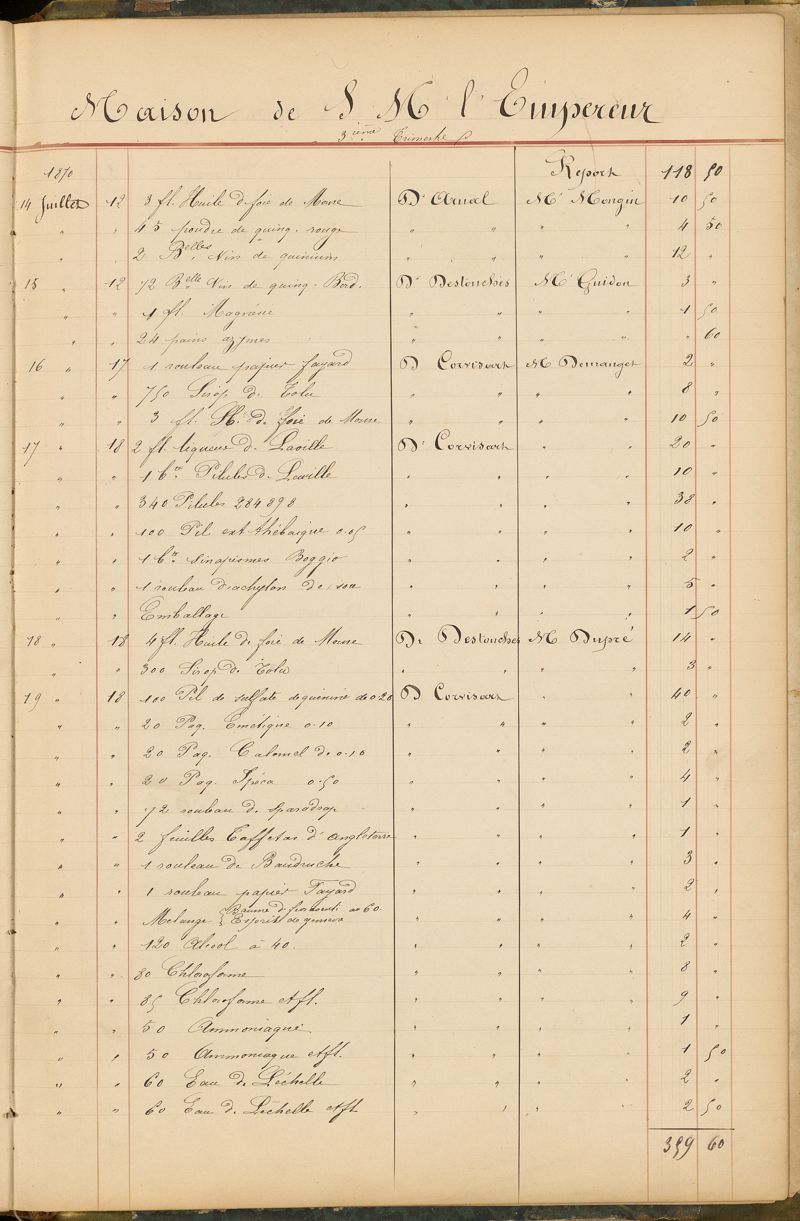 Maison de S M l'Empereur
3ième Trimestre
1870 Report 118 50
14 Juillet 12 3 fl. Huile d. foie de Morue Dr Arnal Mr Mongin 10 50
" " 45 poudre de quinq. rouge " " " " 4 50
" " 2 Belles Vin de quinium " " " " 12 "
15 " 12 1/2 Belle Vin de quinq. Bord. Dr Destouches Mr Guidon 3 "
" " 1 fl. Magnésie " " " " 1 50
" " 24 pains azymes " " " " " 60
16 " 17 1 rouleau papier fayard D Corvisart M Demanget 2 "
" " 750 Sirop d. Tolu " " " " 8 "
" " 3 fl. H. d. foie de Morue " " " " 10 50
17 " 18 2 fl. liqueur d. Laville Dr Corvisart " " 20 "
" " 1 bte Pilules d. Laville " " " " 10 "
" " 340 Pilules 284898 " " " " 38 "
" " 100 Pil ext thébaique 0.05 " " " " 10 "
" " 1 bte Sinapismes Boggio " " " " 2 "
" " 1 rouleau Diachylon " " " " 5 "
" " Emballage " " " " 1 50
18 " 18 4 fl. Huile de foie de Morue Dr Destouches M Dupré 14 "
" " 300 Sirop d. Tolu " " " " 3 "
19 " 18 100 Pil de sulfate de quinine de 0.20 D Corvisart " " 40 "
" " 20 Paq. Emétique 0.10 " " " " 2 "
" " 20 Paq. Calomel d. 0.10 " " " " 2 "
" " 20 Paq. Ipéca 0.50 " " " " 4 "
" " 1/2 rouleau d. sparadrap " " " " 1 "
" " 2 feuilles Taffetas d'Angleterre " " " " 1 "
" " 1 rouleau de Baudruche " " " " 3 "
" " 1 rouleau papier Fayard " " " " 2 "
" " Melange { Baume d. fioraventi aa 60 " " " " 4 "
Esprit de genièvre
" " 120 Alcool à 40. " " " " 2 "
" " 80 Chloroforme " " " " 8 "
" " 85 Chloroforme et fl. " " " " 9 "
" " 50 Ammoniaque " " " " 1 "
" " 50 Ammoniaque et fl. " " " " 1 50
" " 60 Eau d. Léchelle " " " " 2 "
" " 60 Eau d. Léchelle et fl " " " " 2 50
359 60